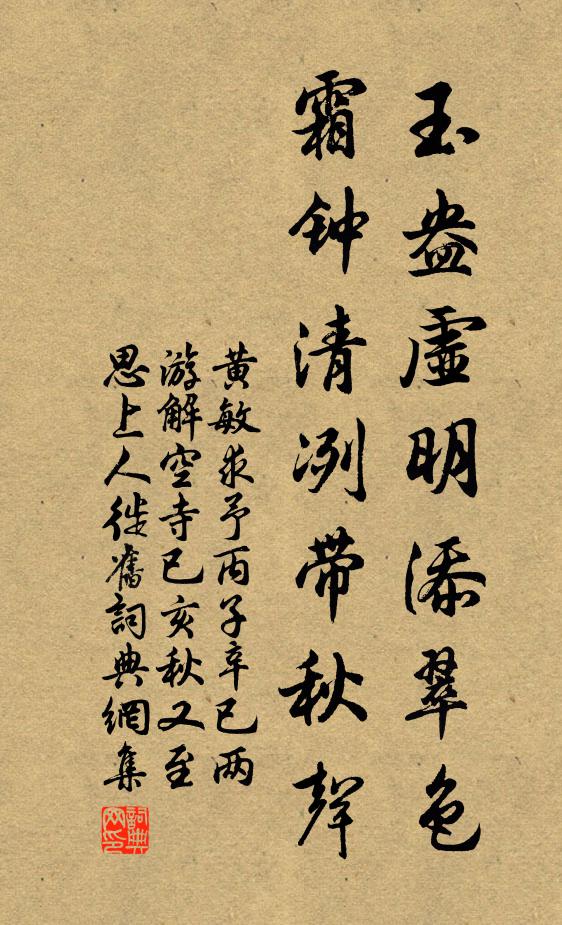 玉盎虚明添翠色
霜钟清冽带秋声
黄敏求予丙子辛巳两
游解空寺已亥秋又至
思上人徙旧詞典網集
詞典网印